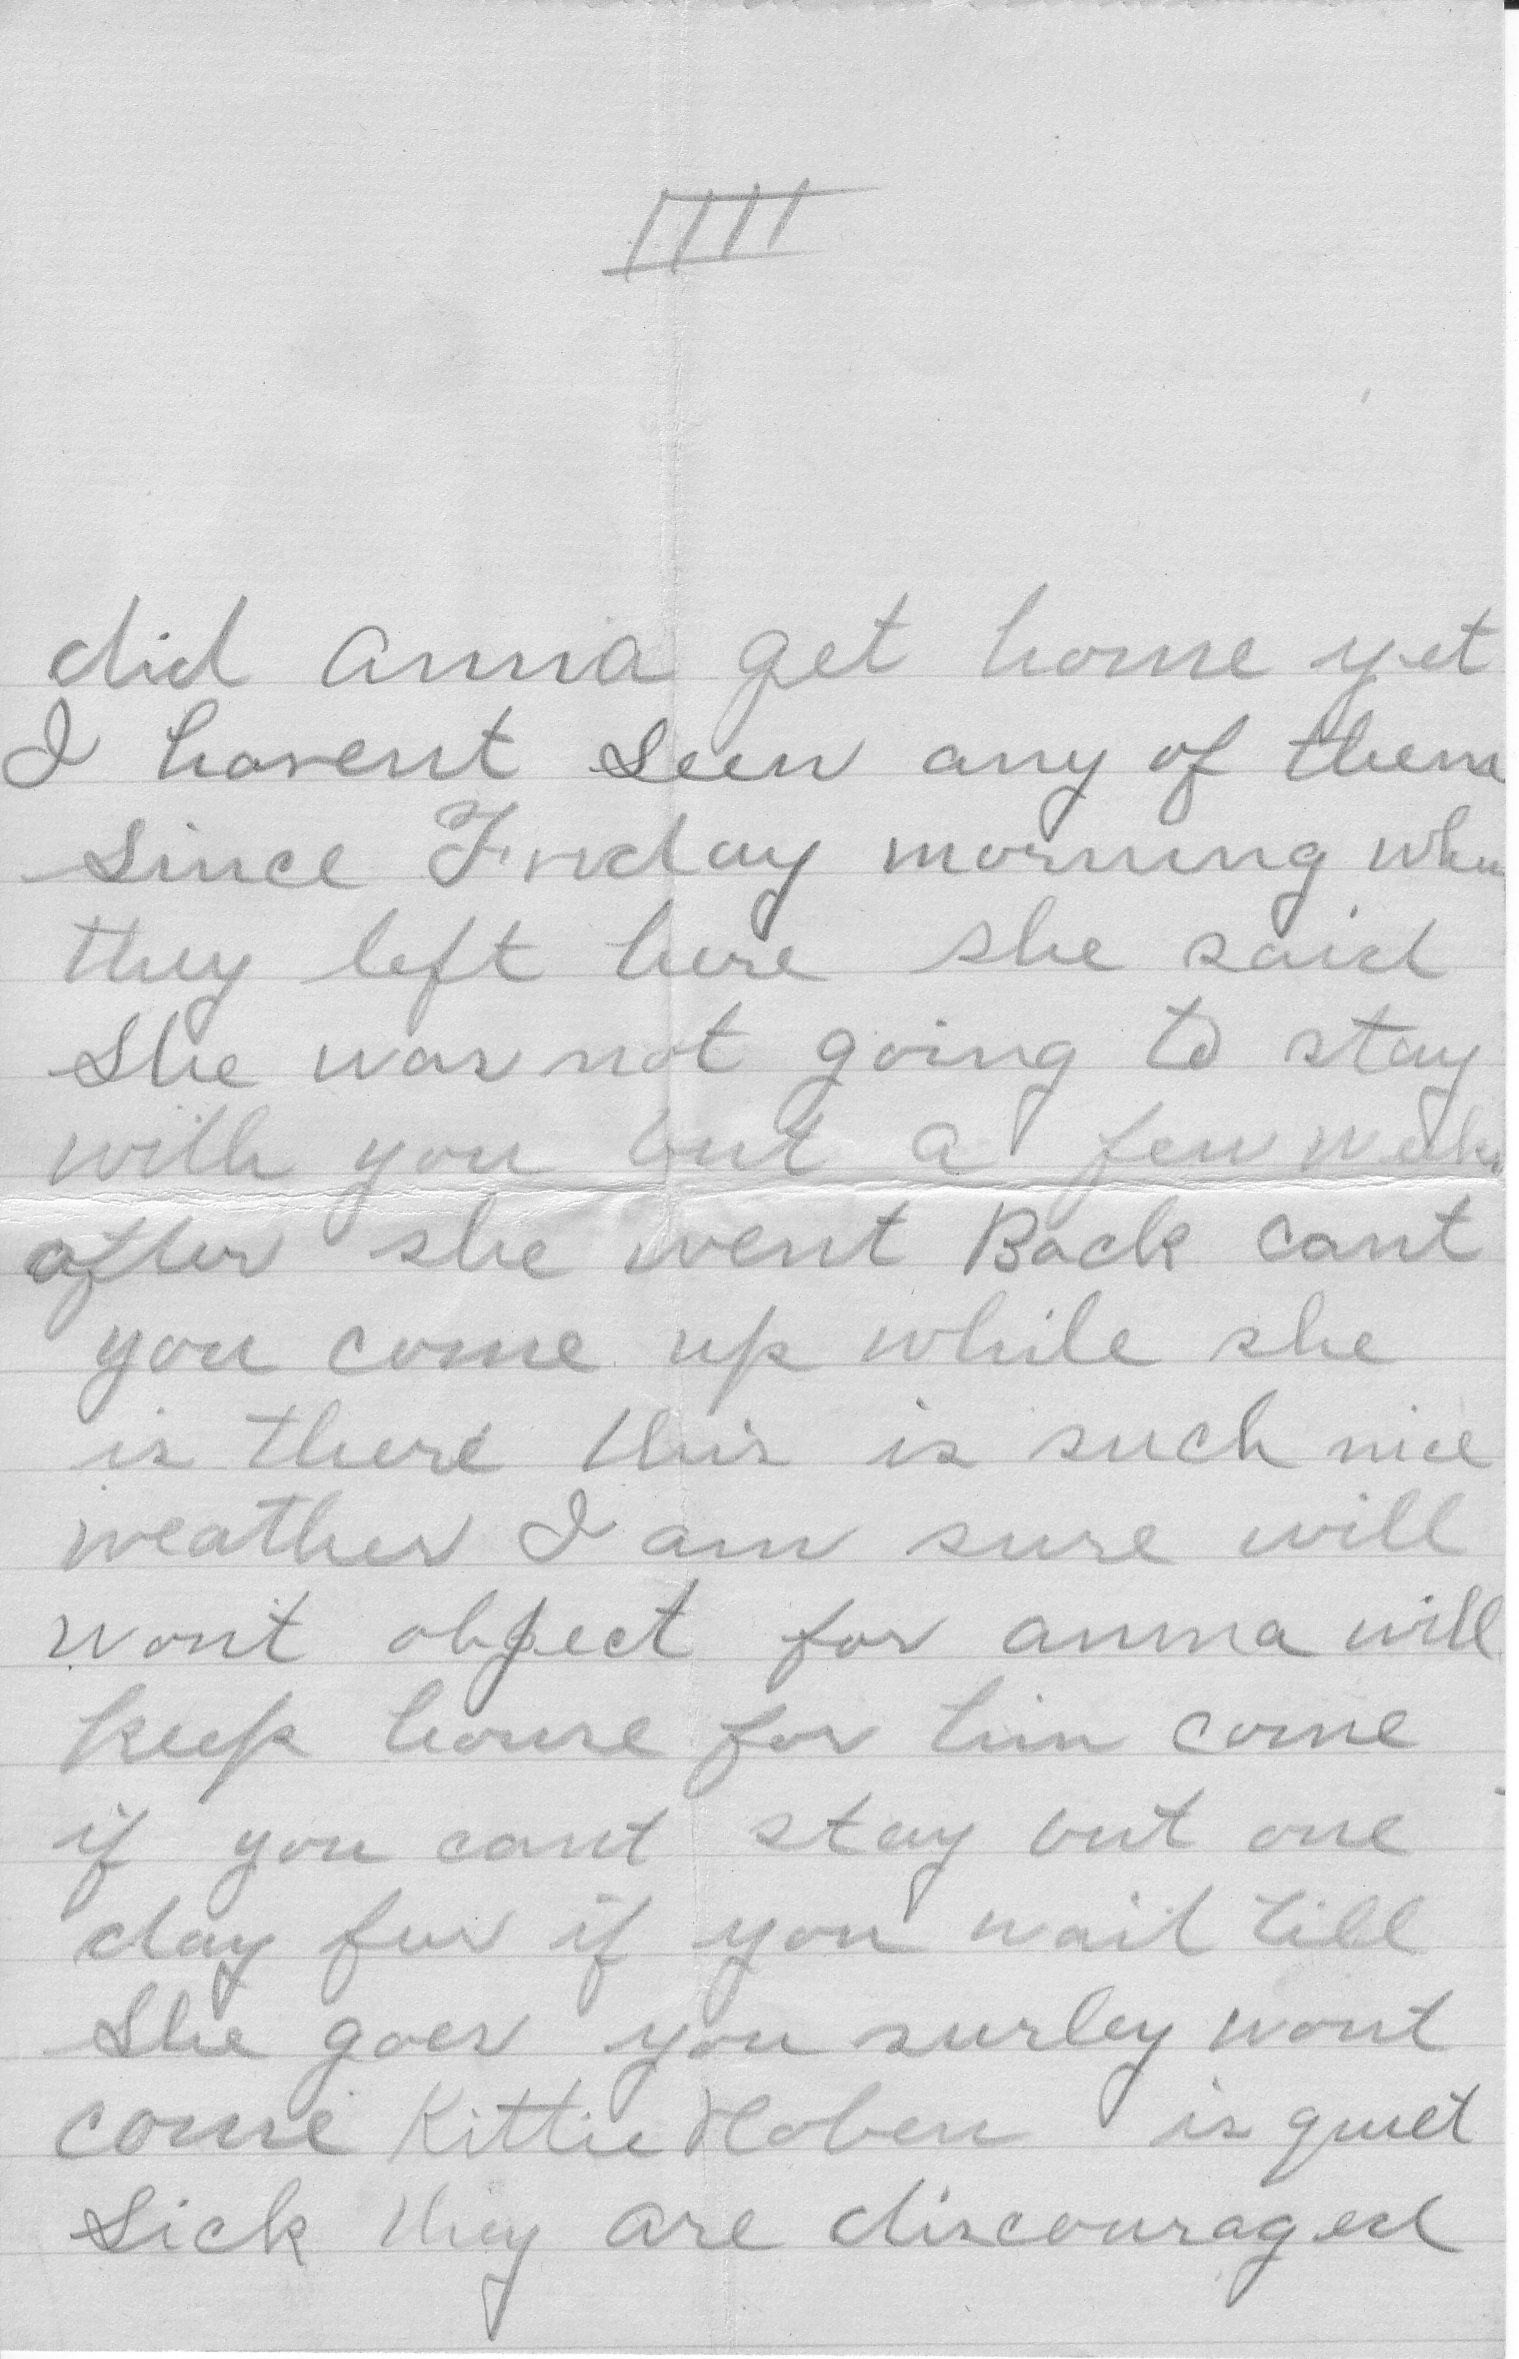 IIII
did anna get home yet
I havent seen any of them
since Friday morning when
they left here she said
She was not going to stay
with you but a few weeks
after she went Back cant
you come up while she
is there this is such nice
weather I am sure will
wont object for anna will
keep house for him come
if you cant stay but one
day for if you wait till
She goes you surley wont
come Kittie Hoben is quiet
Sick they are discouraged